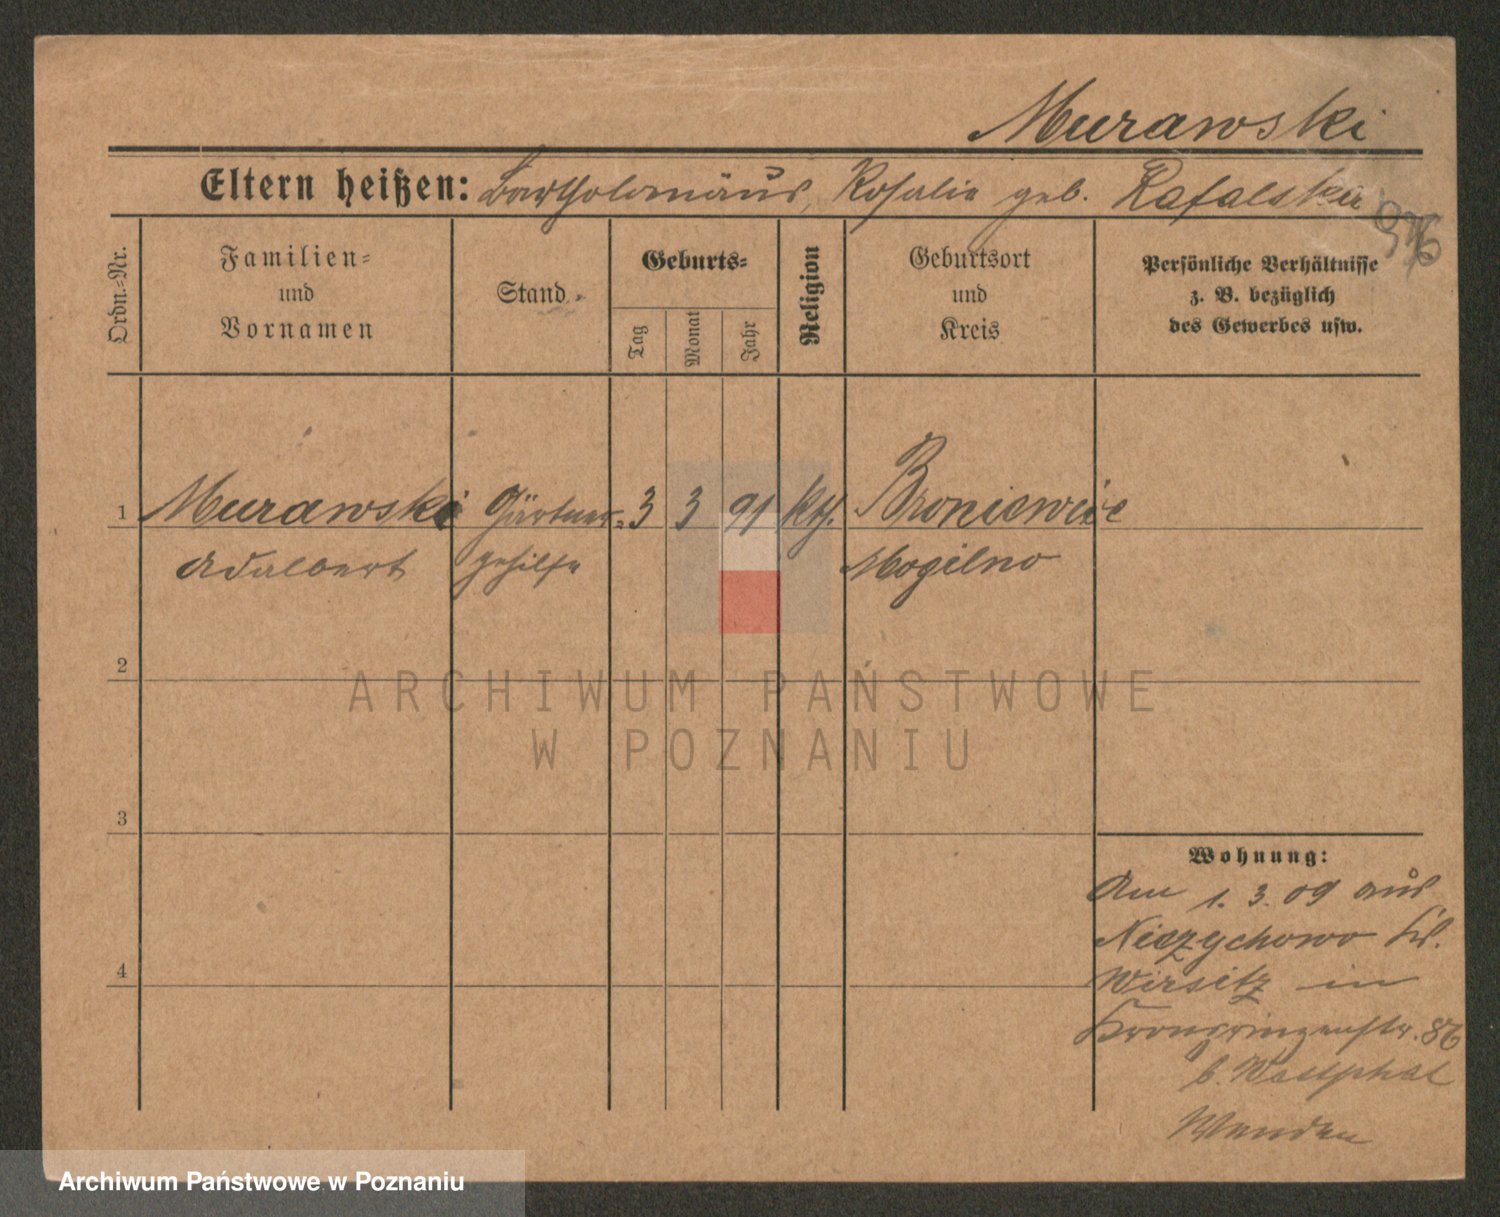 Murawski
Eltern heißen: Bartholomäus, Rosalie geb. Rafalska
976
Ordn.-Nr.
Familien-
und
Vornamen
Stand
Geburts-
Tag
Monat
Jahr
Religion
Geburtsort
und
Kreis
Persönliche Verhältnisse
z. B. bezüglich
des Gewerbes usw.
1 Murawski Gärtner- 3 3 91 kth. Broniewice
Adalbert gehilfe Mogilno
2
3
4
Wohnung:
Am 1. 3. 09 aus
Niezychowo Kr.
Wirsitz in
Kronprinzenstr. 86
b. Westphal
ARCHIWUM PAŃSTWOWE
W POZNANIU
Archiwum Państwowe w Poznaniu